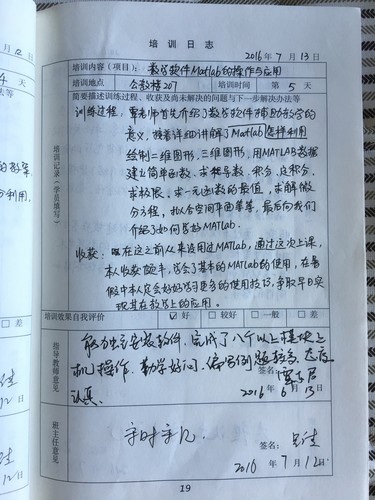 培训日志
2016年7月13日
培训内容(项目): 数学软件Matlab的操作与应用
培训地点 公教楼207 培训时间 第5天
简要描述训练过程,收获及尚未解决的问题与下一步解决办法等
培训记录(学员填写)
训练过程: 覃老师首先介绍了数学软件辅助教学的
意义,接着详细讲解了Matlab怎样利用
绘制二维图形,三维图形,用MATLAB数据
建立简单函数,求积导数,积分,定积分,
求极限,求一元函数的最值,求解微
分方程,拟合空间平面等等,最后向我们
介绍了如何学好MATLAB.
收获: 在这之前从来没用过MATLAB,通过这次上课,
本人收获颇丰,学会了基本的MATLAB的使用,在暑
假中本人定会好好学习更多的使用技巧,争取早日实
现其在教学上的应用。
培训效果自我评价 ☑好 □较好 □一般 □差
指导教师意见
能力独立安装软件,完成了八个以上模块上
机操作,勤学好问,编写例题报告,态度
认真.
签名:
2016年6月13日
班主任意见
守时守纪.
签名:
2016年7月12日
19